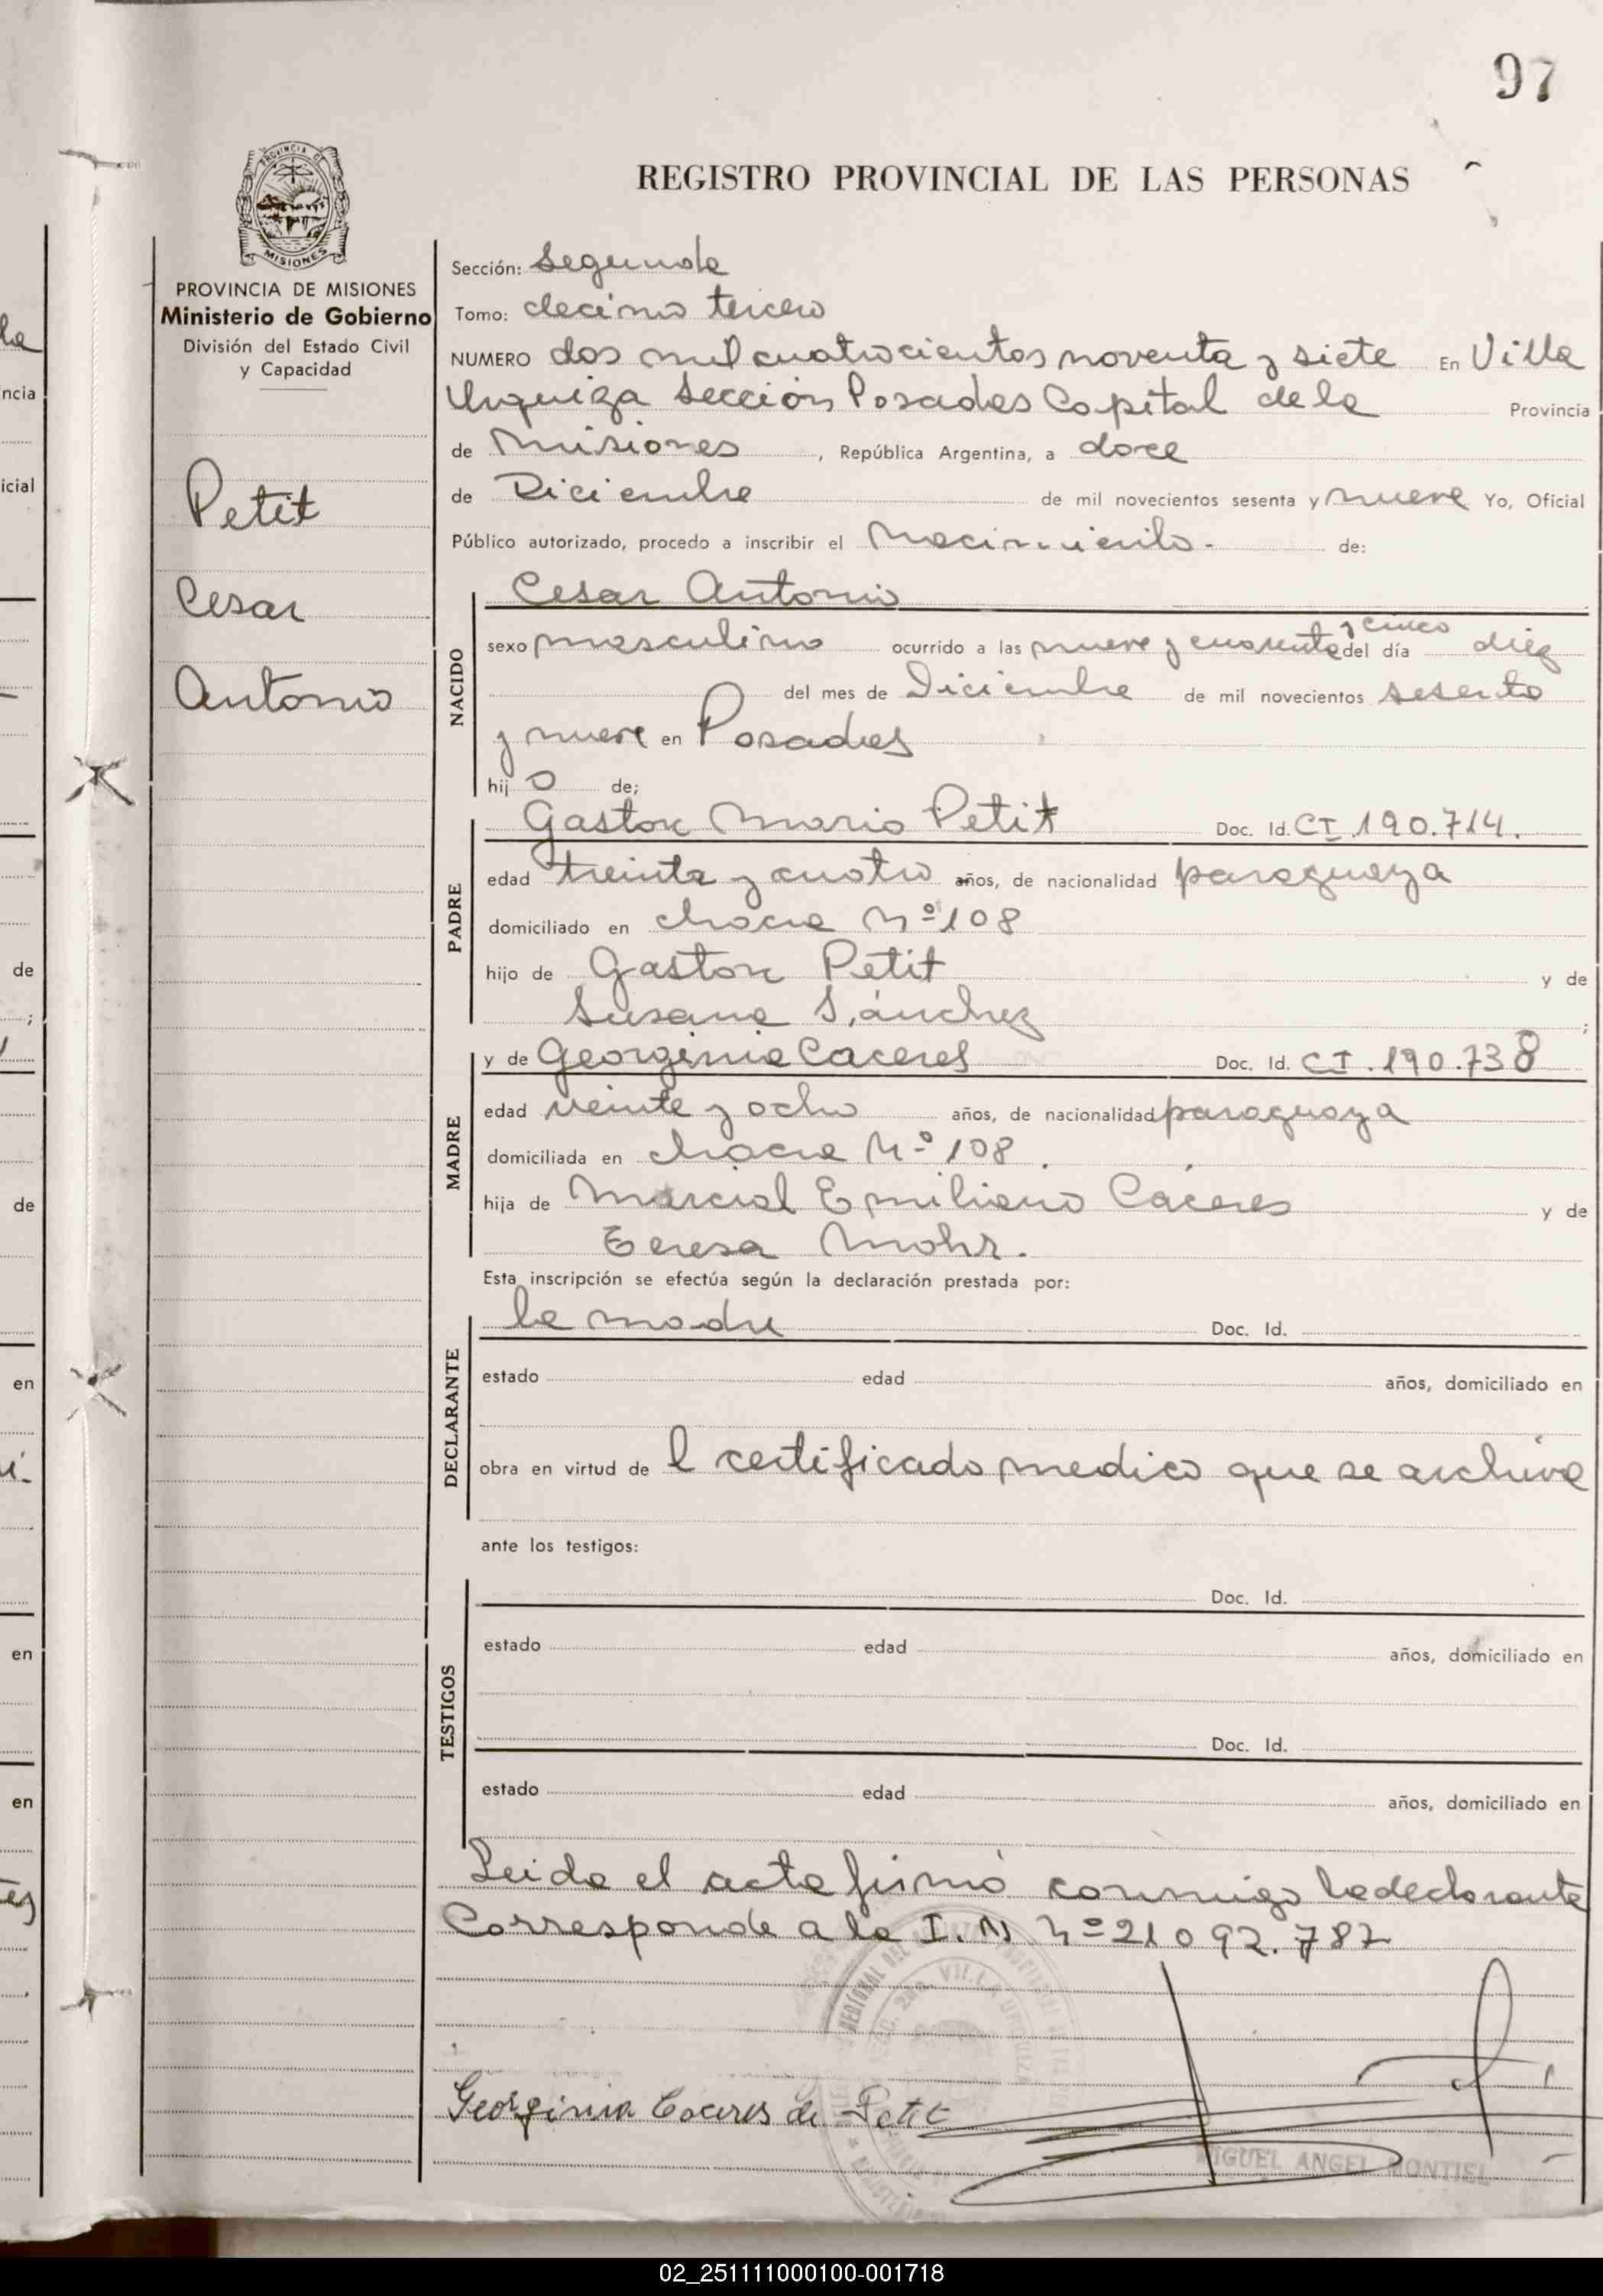 97
REGISTRO PROVINCIAL DE LAS PERSONAS
PROVINCIA DE MISIONES
Ministerio de Gobierno
División del Estado Civil
y Capacidad
Petit
Cesar
Antonio
Sección: Segunda
Tomo: decimo tercero
NUMERO dos mil cuatrocientos noventa y siete En Villa
Urquiza Sección Posadas Capital de la Provincia
de Misiones, República Argentina, a doce
de Diciembre de mil novecientos sesenta y nueve Yo, Oficial
Público autorizado, procedo a inscribir el Nacimiento. de:
NACIDO
Cesar Antonio
y cinco
sexo masculino ocurrido a las nueve y cuarenta del día diez
del mes de Diciembre de mil novecientos sesenta
y nueve en Posadas
hij o de;
PADRE
Gaston Mario Petit Doc. Id. CI 190.714.
edad treinta y cuatro años, de nacionalidad paraguaya
domiciliado en chacra Nº 108
hijo de Gaston Petit y de
Susana Sánchez ;
MADRE
y de Georginia Caceres Doc. Id. CI. 190.738
edad veinte y ocho años, de nacionalidad paraguaya
domiciliada en chacra Nº 108.
hija de Marcial Emiliano Cáceres y de
Teresa Mohr.
Esta inscripción se efectúa según la declaración prestada por:
DECLARANTE
la madre Doc. Id.
estado edad años, domiciliado en
obra en virtud de l certificado medico que se archiva
ante los testigos:
TESTIGOS
Doc. Id.
estado edad años, domiciliado en
Doc. Id.
estado edad años, domiciliado en
Leida el acta firmó conmigo la declarante
Corresponde a la I.N Nº 21092.787
Georginia Caceres de Petit
MIGUEL ANGEL MONTIEL
02_251111000100-001718